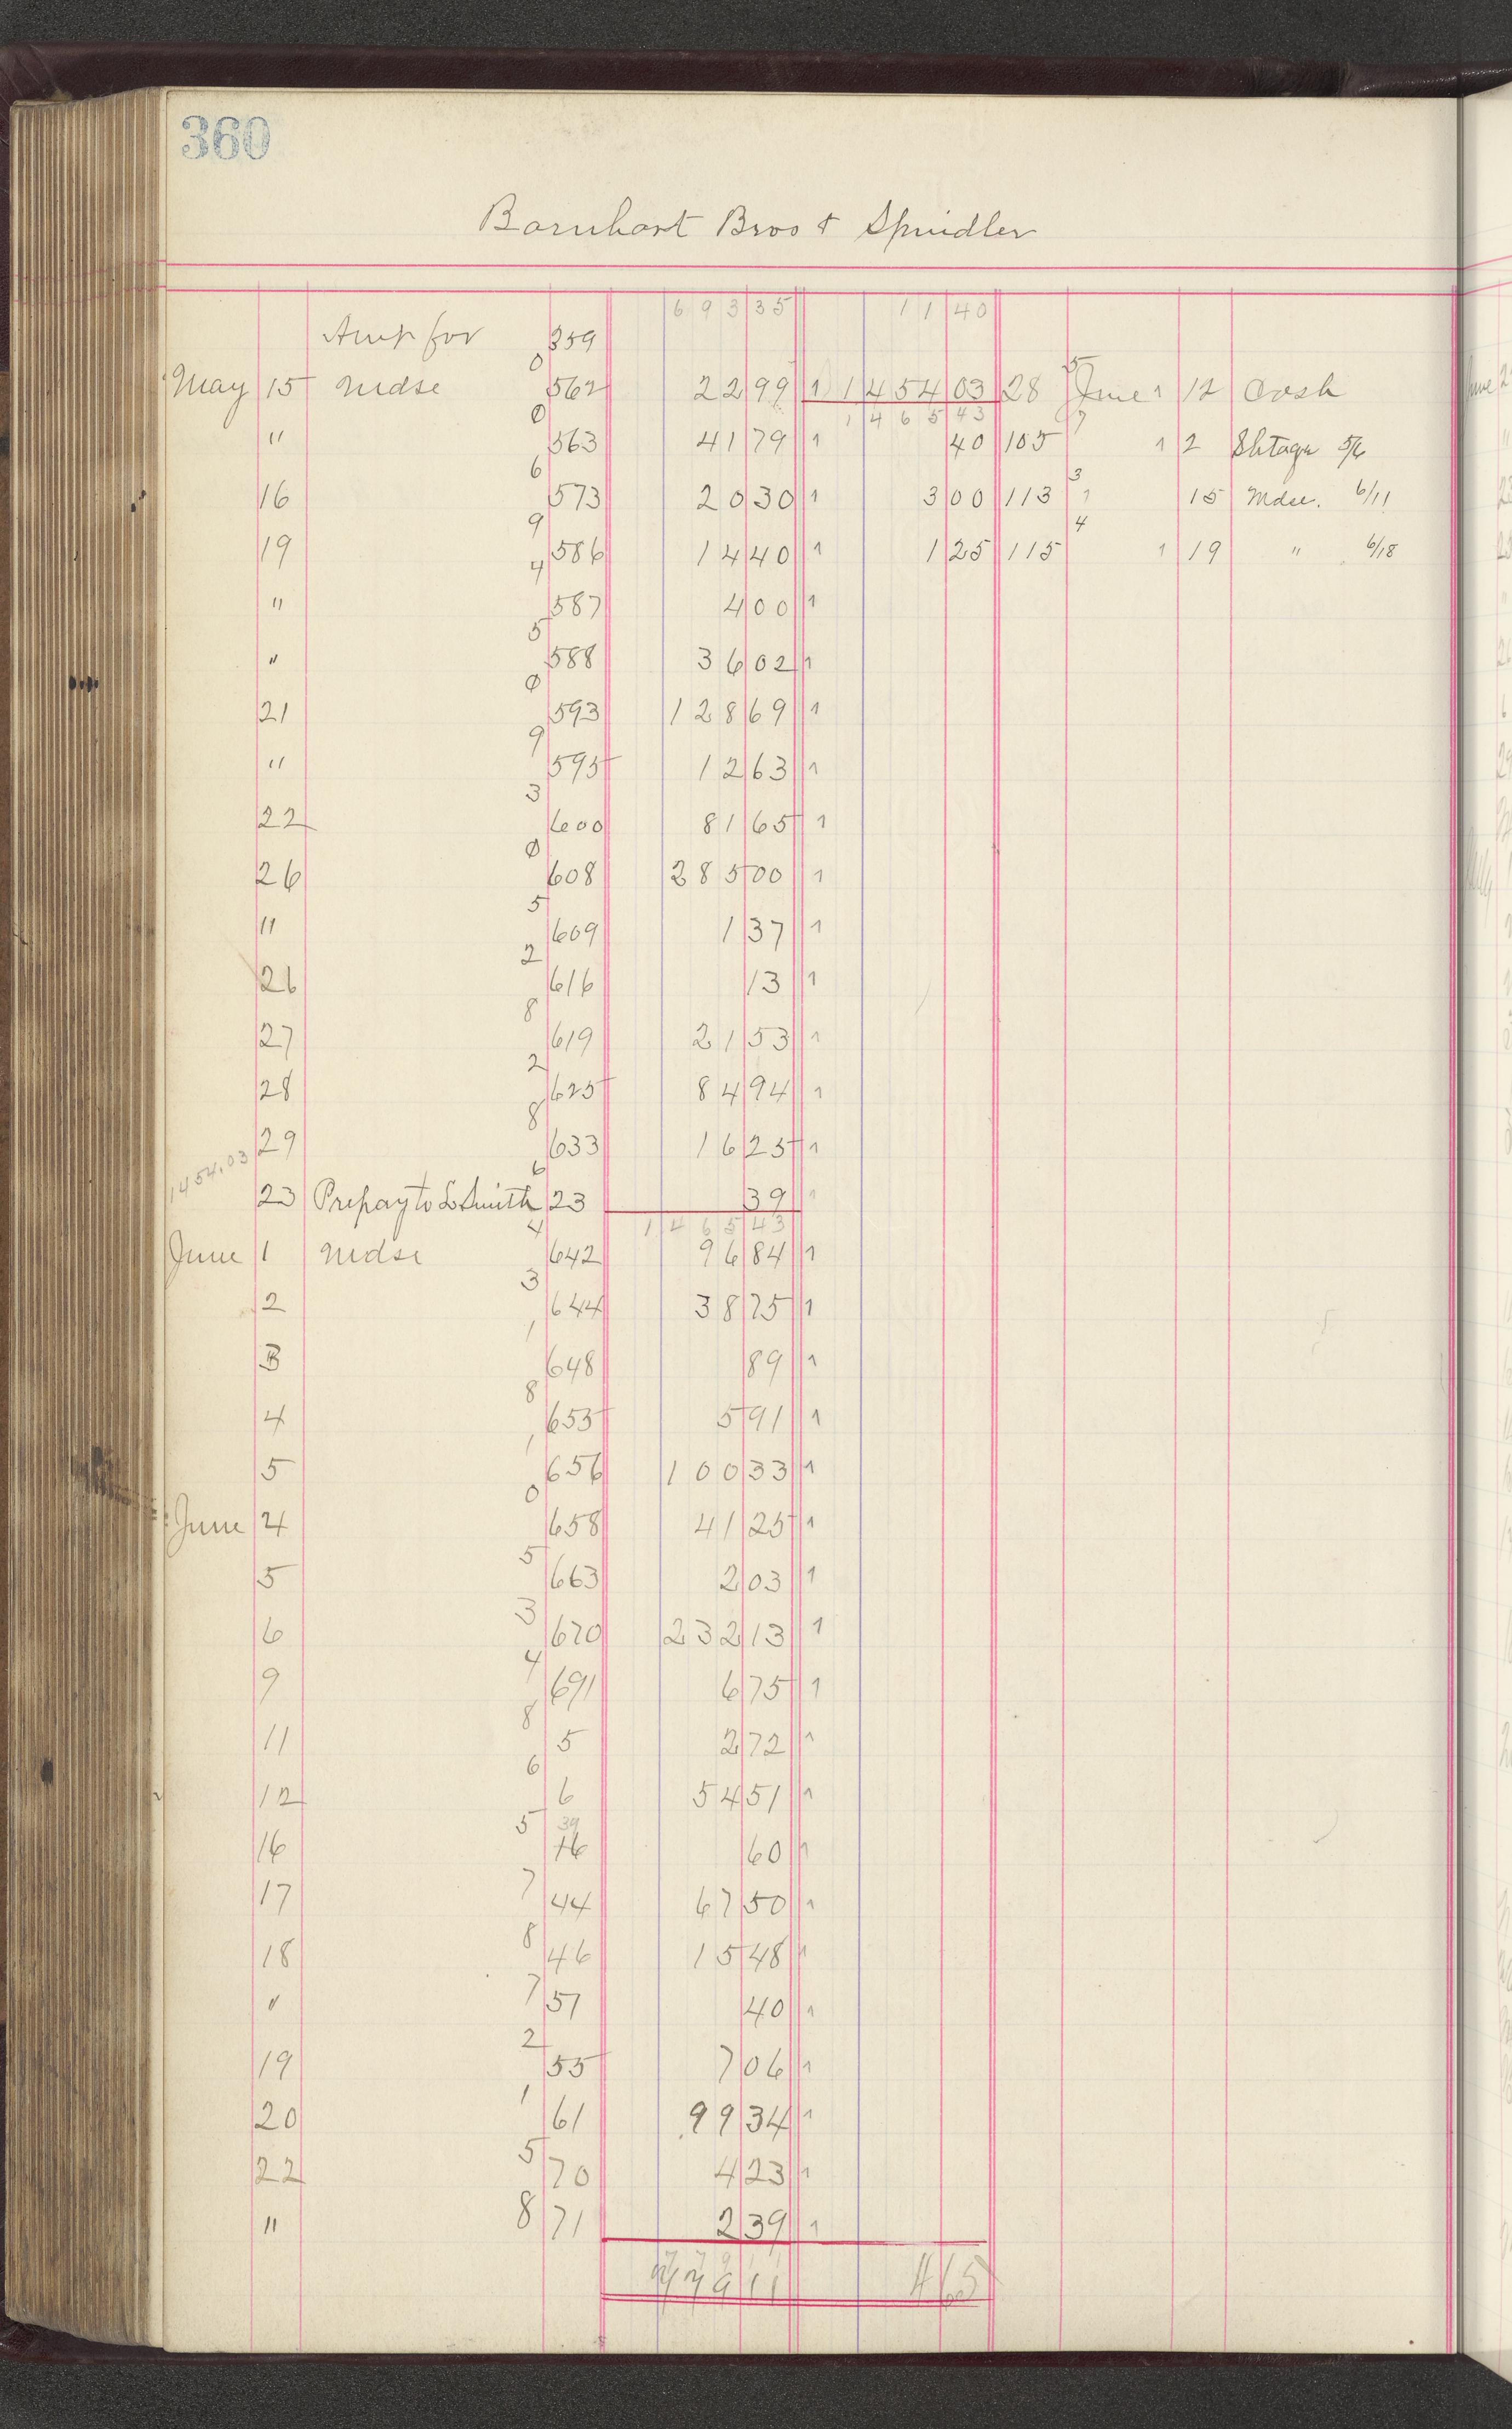 360
Barnhart Bros & Spindler
693 35 11 40
Amt for 359
May 15 Mdse 0 562 22 99 1 1454 03 28 5 June 1 12 Cash
1465 43
" 0 563 41 79 1 40 105 7 1 2 Shtage 5/6
16 6 573 20 30 1 3 00 113 3 1 15 Mdse. 6/11
19 9 586 14 40 1 1 25 115 4 1 19 " 6/18
" 4 587 4 00 1
" 5 588 36 02 1
21 0 593 128 69 1
" 9 595 12 63 1
22 3 600 81 65 1
26 0 608 285 00 1
" 5 609 1 37 1
26 2 616 13 1
27 8 619 21 53 1
28 2 625 84 94 1
29 8 633 16 25 1
1454.03
23 Prepay to L Smith 6 23 39 1
1465 43
June 1 Mdse 4 642 96 84 1
2 3 644 38 75 1
3 1 648 89 1
4 8 655 5 91 1
5 1 656 100 33 1
June 4 0 658 41 25 1
5 5 663 2 03 1
6 3 670 232 13 1
9 4 691 6 75 1
11 8 5 2 72 1
12 6 6 54 51 1
39
16 5 16 60 1
17 7 44 67 50 1
18 8 46 15 48 1
" 7 51 40 1
19 2 55 7 06 1
20 1 61 99 34 1
22 5 70 4 23 1
" 8 71 2 39 1
779 11 4 65